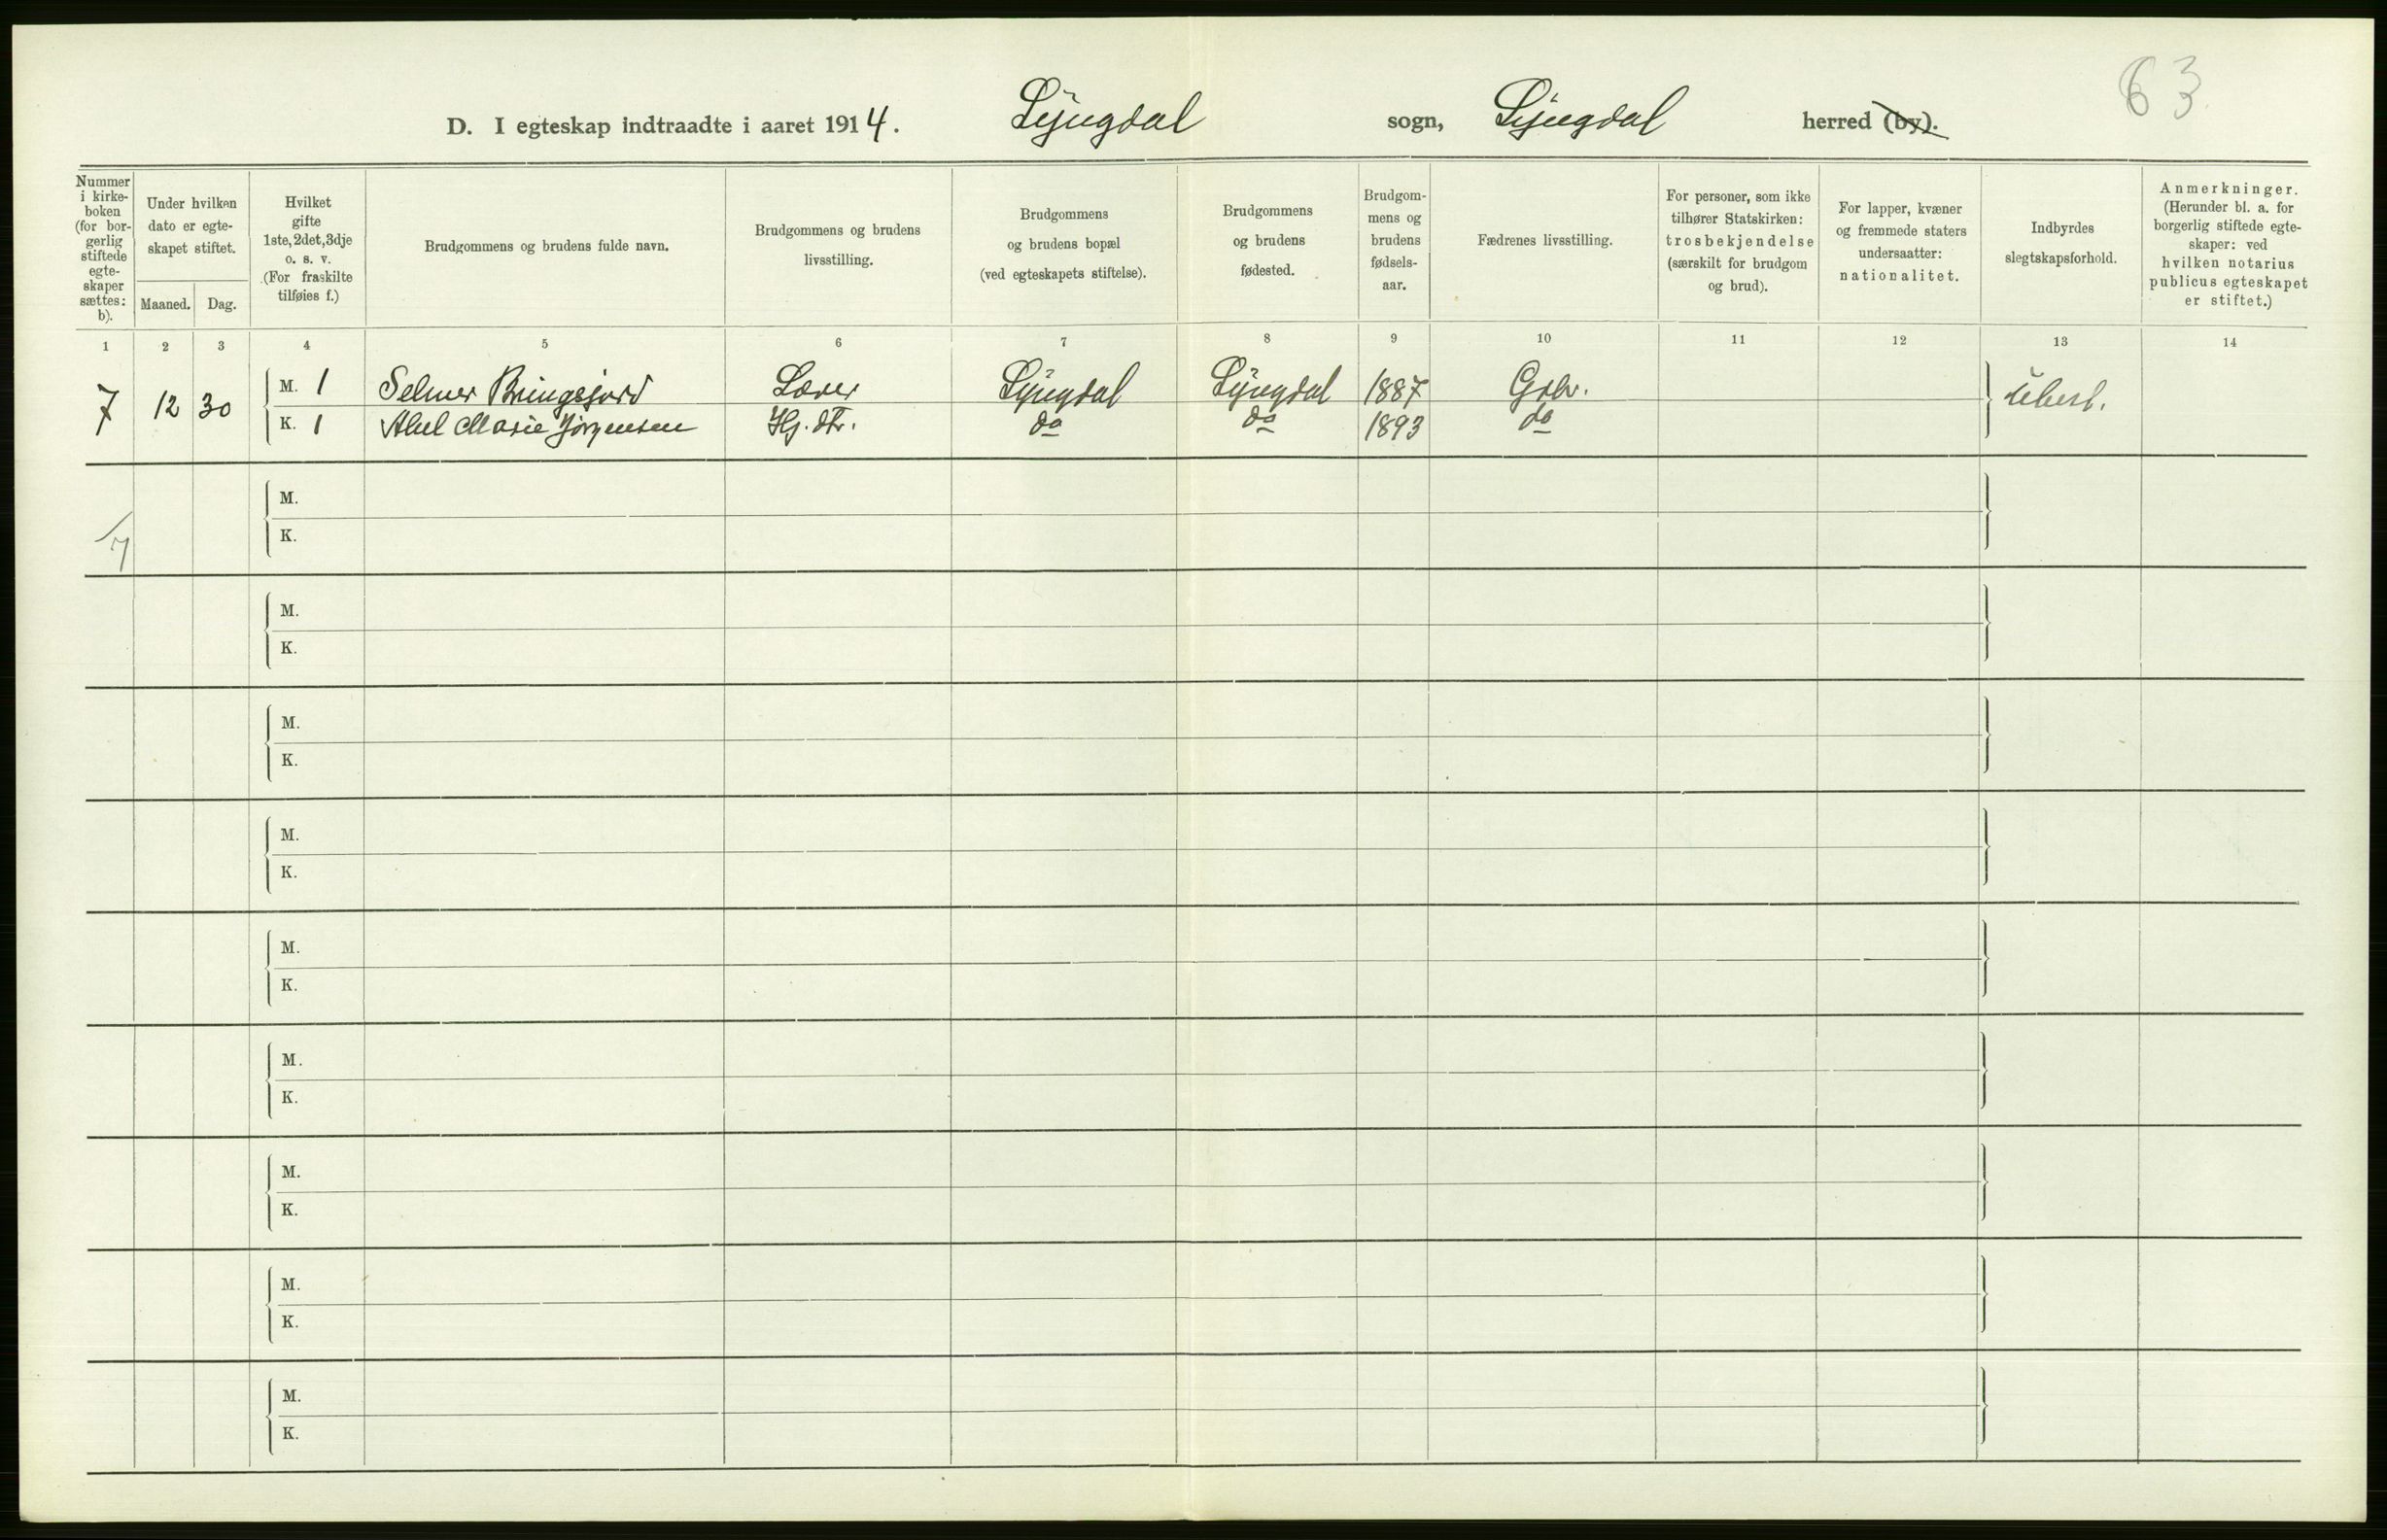 63
D. I egteskap indtraadte i aaret 1914. Lyngdal sogn, Lyngdal herred (by).
Nummer i kirke-boken (for bor-gerlig stiftede egte-skaper sættes: b).
Under hvilken dato er egte-skapet stiftet.
Maaned. Dag.
Hvilket gifte 1ste, 2det, 3dje o. s. v. (For fraskilte tilføies f.)
Brudgommens og brudens fulde navn.
Brudgommens og brudens livsstilling.
Brudgommens og brudens bopæl (ved egteskapets stiftelse).
Brudgommens og brudens fødested.
Brudgom-mens og brudens fødsels-aar.
Fædrenes livsstilling.
For personer, som ikke tilhører Statskirken: trosbekjendelse (særskilt for brudgom og brud).
For lapper, kvæner og fremmede staters undersaatter: nationalitet.
Indbyrdes slegtskapsforhold.
Anmerkninger. (Herunder bl. a. for borgerlig stiftede egte-skaper: ved hvilken notarius publicus egteskapet er stiftet.)
1 2 3 4 5 6 7 8 9 10 11 12 13 14
7 12 30 M. 1 Selmer Bringsjord Lærer Lyngdal Lyngdal 1887 Grbr. ubesl.
K. 1 Abel Marie Jörgensen Hj. dtr. do do 1893 do
M.
K.
7
M.
K.
M.
K.
M.
K.
M.
K.
M.
K.
M.
K.
M.
K.
M.
K.